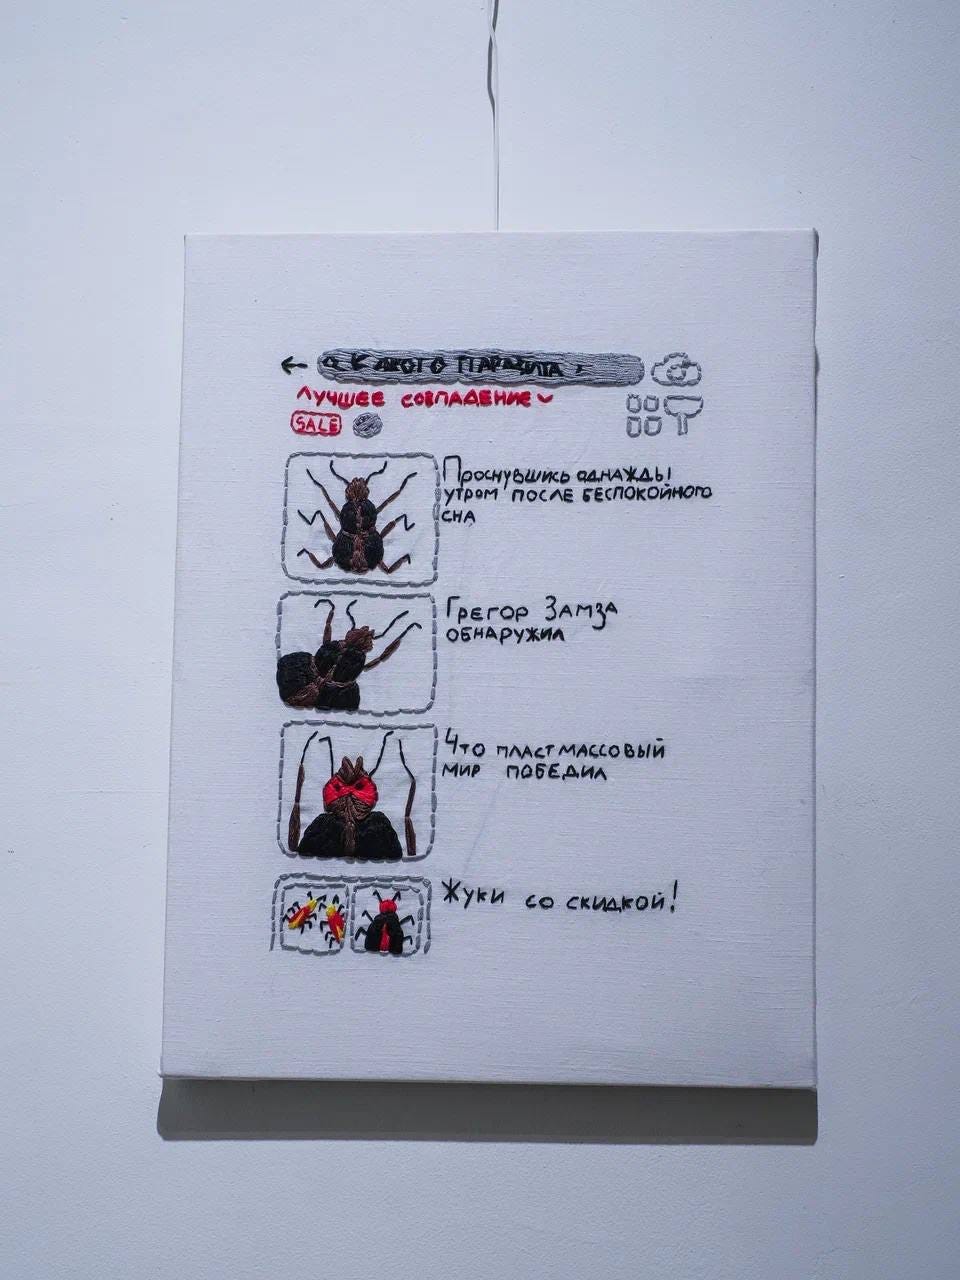 КАКОГО ПАРАЗИТА
ЛУЧШЕЕ СОВПАДЕНИЕ
SALE
Проснувшись однажды
утром после беспокойного
сна
Грегор Замза
обнаружил
Что пластмассовый
мир победил
Жуки со скидкой!